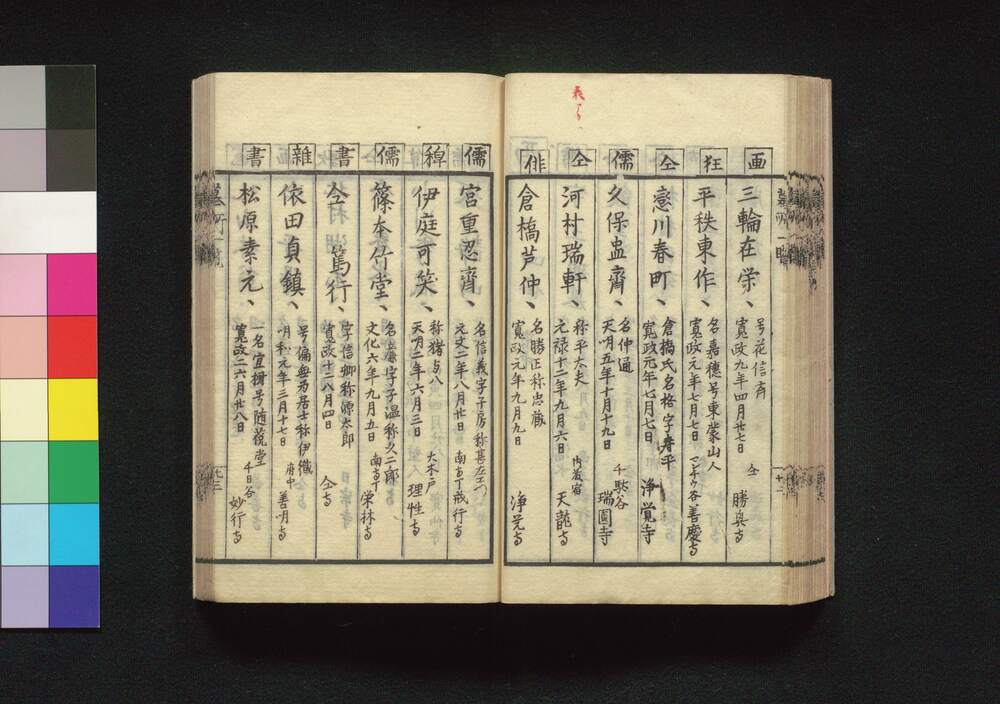 画
三輪在栄、
号花信斉
寛政九年四月廿七日
仝 勝興寺
狂
平秩東作、
名嘉穗号東蒙山人
寛政元年七月七日
善慶寺
仝
恋川春町、
倉橋氏名格字寿平
寛政元年七月七日
浄覚寺
儒
久保盅齊、
名仲通
天明五年十月十九日
千駄谷
瑞圓寺
仝
河村瑞軒、
称平太夫
元禄十二年九月六日
内藤宿
天龍寺
俳
倉橋芦仲、
名勝正称忠藏
寛政元年九月九日
浄覚寺
儒
宮重忍齊、
名信義字子房称甚左エ門
元文二年八月廿日
南寺丁戒行寺
稗
伊庭可笑、
称猪与八
天明二年六月三日
大木戸
理性寺
儒
篠本竹堂、
字子温称久二郎
文化六年九月五日
南寺丁
栄林寺
書
仝 篤行、
字信卿称源太郎
寛政十二八月四日
仝寺
雜
依田貞鎮、
号偏無為居士称伊織
明和元年三月十七日
府中
善明寺
書
松原素元、
一名宜樹号随蓯堂
寛政二六月廿八日
千日谷
妙行寺